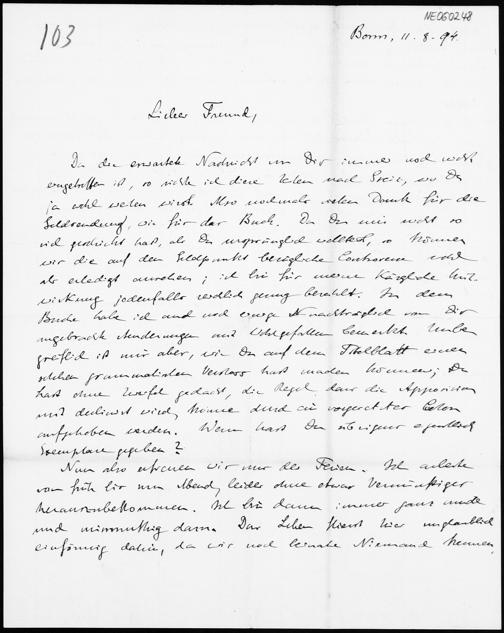 NE060248
103
Bonn, 11.8.94.
Lieber Freund,
Da die erwartete Nachricht von Dir immer noch nicht
eingetroffen ist, so richte ich diese Zeilen nach Greiz, wo Du
ja wohl weilen wirst. Also nochmals vielen Dank für die
Geldsendung, wie für das Buch. Da Du mir nicht so
viel geschickt hast, als Du ursprünglich wolltest, so können
wir die auf den Geldpunkt bezügliche Controverse wohl
als erledigt ansehen; ich bin für meine Klägliche Mit-
wirkung jedenfalls redlich genug bezahlt. In dem
Buche habe ich auch noch einige nachträglich von Dir
angebrachte Änderungen mit Wohlgefallen bemerkt. Unbe-
greiflich ist mir aber, wie Du auf dem Titelblatt einen
solchen grammatischen Verstoss hast machen können; Du
hast ohne Zweifel gedacht, die Regel, dass die Apposition
mit declinirt wird, könne durch ein vorgesetztes Colon
aufgehoben werden. Wem hast Du übrigens eigentlich
Exemplare gegeben?
Nun also erfreuen wir uns der Ferien. Ich arbeite
von früh bis zum Abend, leider ohne etwas Vernünftiges
herauszubekommen. Ich bin dann immer ganz müde
und missmuthig dazu. Das Leben fliesst hier unglaublich
einförmig dahin, da wir noch beinahe Niemand kennen,